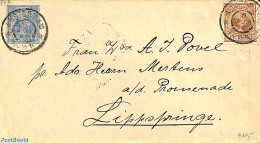 Frau Wwe A. J. Povel
pr. Adr. Herrn Mertens
a/d. Promenade
Lippspringe.
PostBeeld